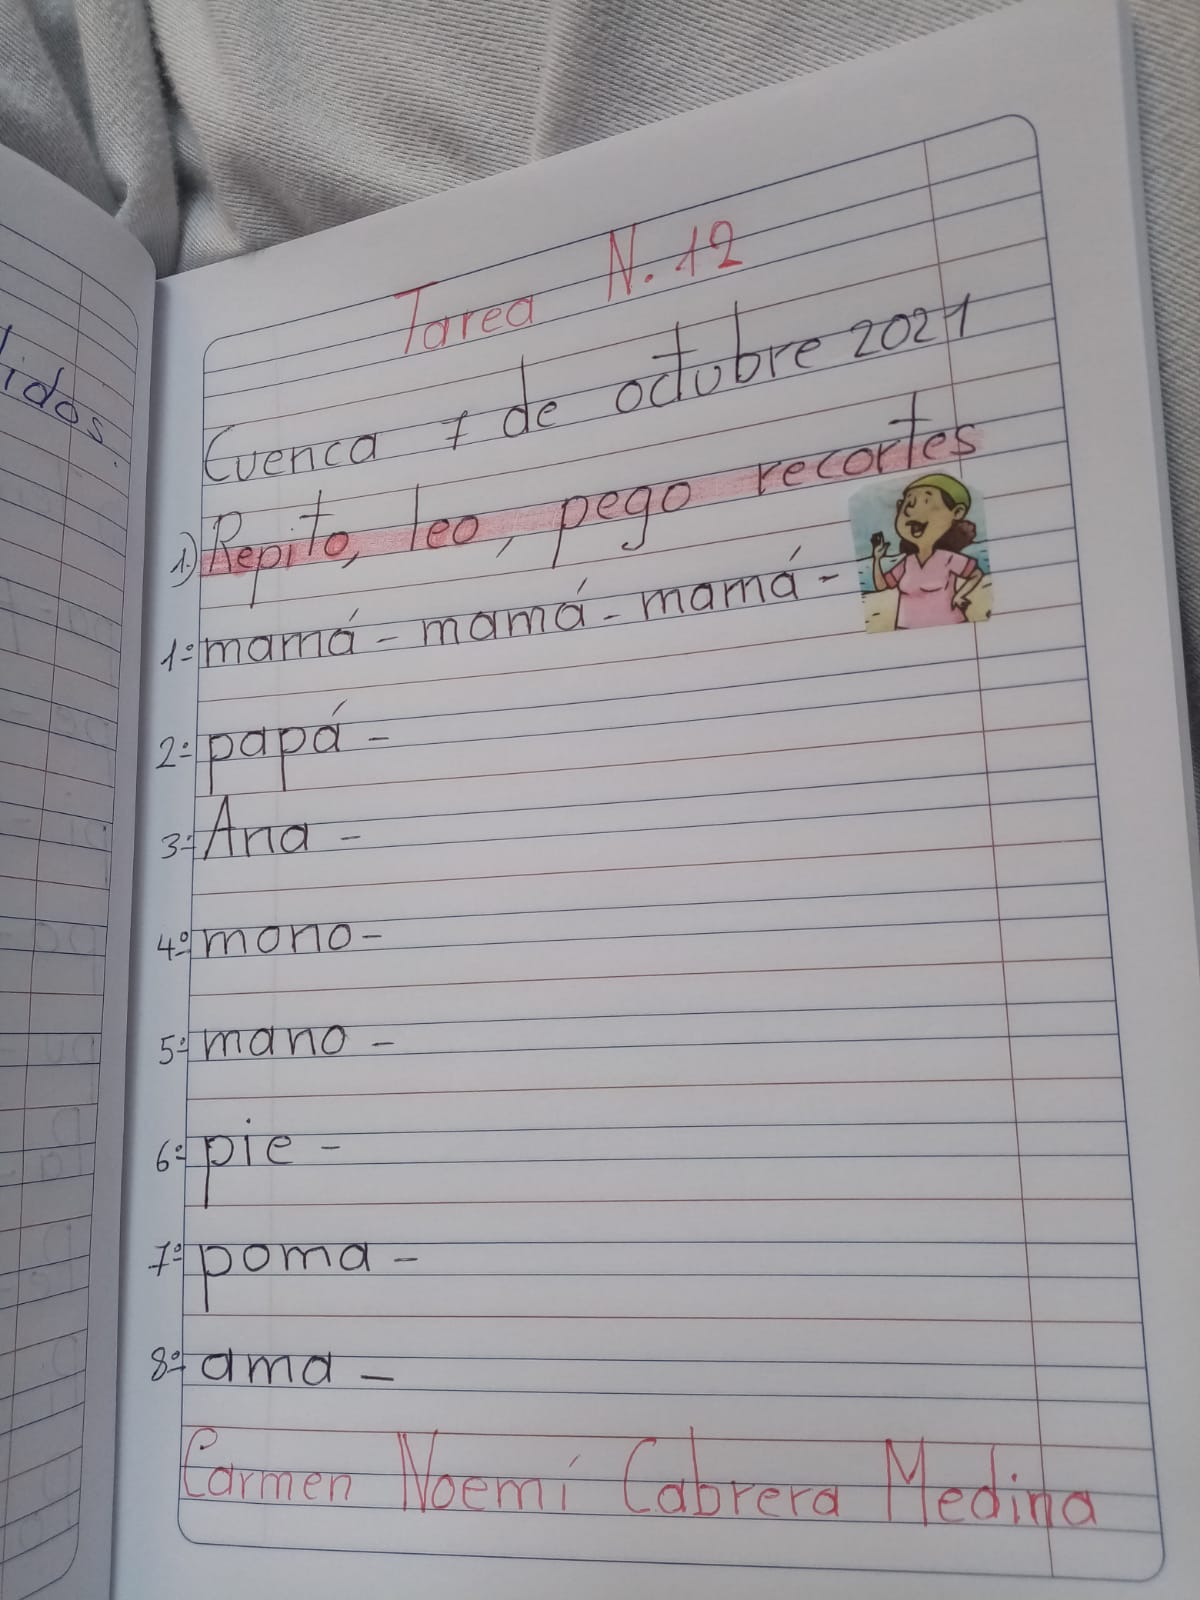 lidos.
Tarea N. 12
Cuenca 7 de octubre 2021
1.) Repito, leo, pego recortes
1º mamá - mamá - mamá -
2º papá -
3º Ana -
4º mono -
5º mano -
6º pie -
7º poma -
8º ama -
Carmen Noemí Cabrera Medina